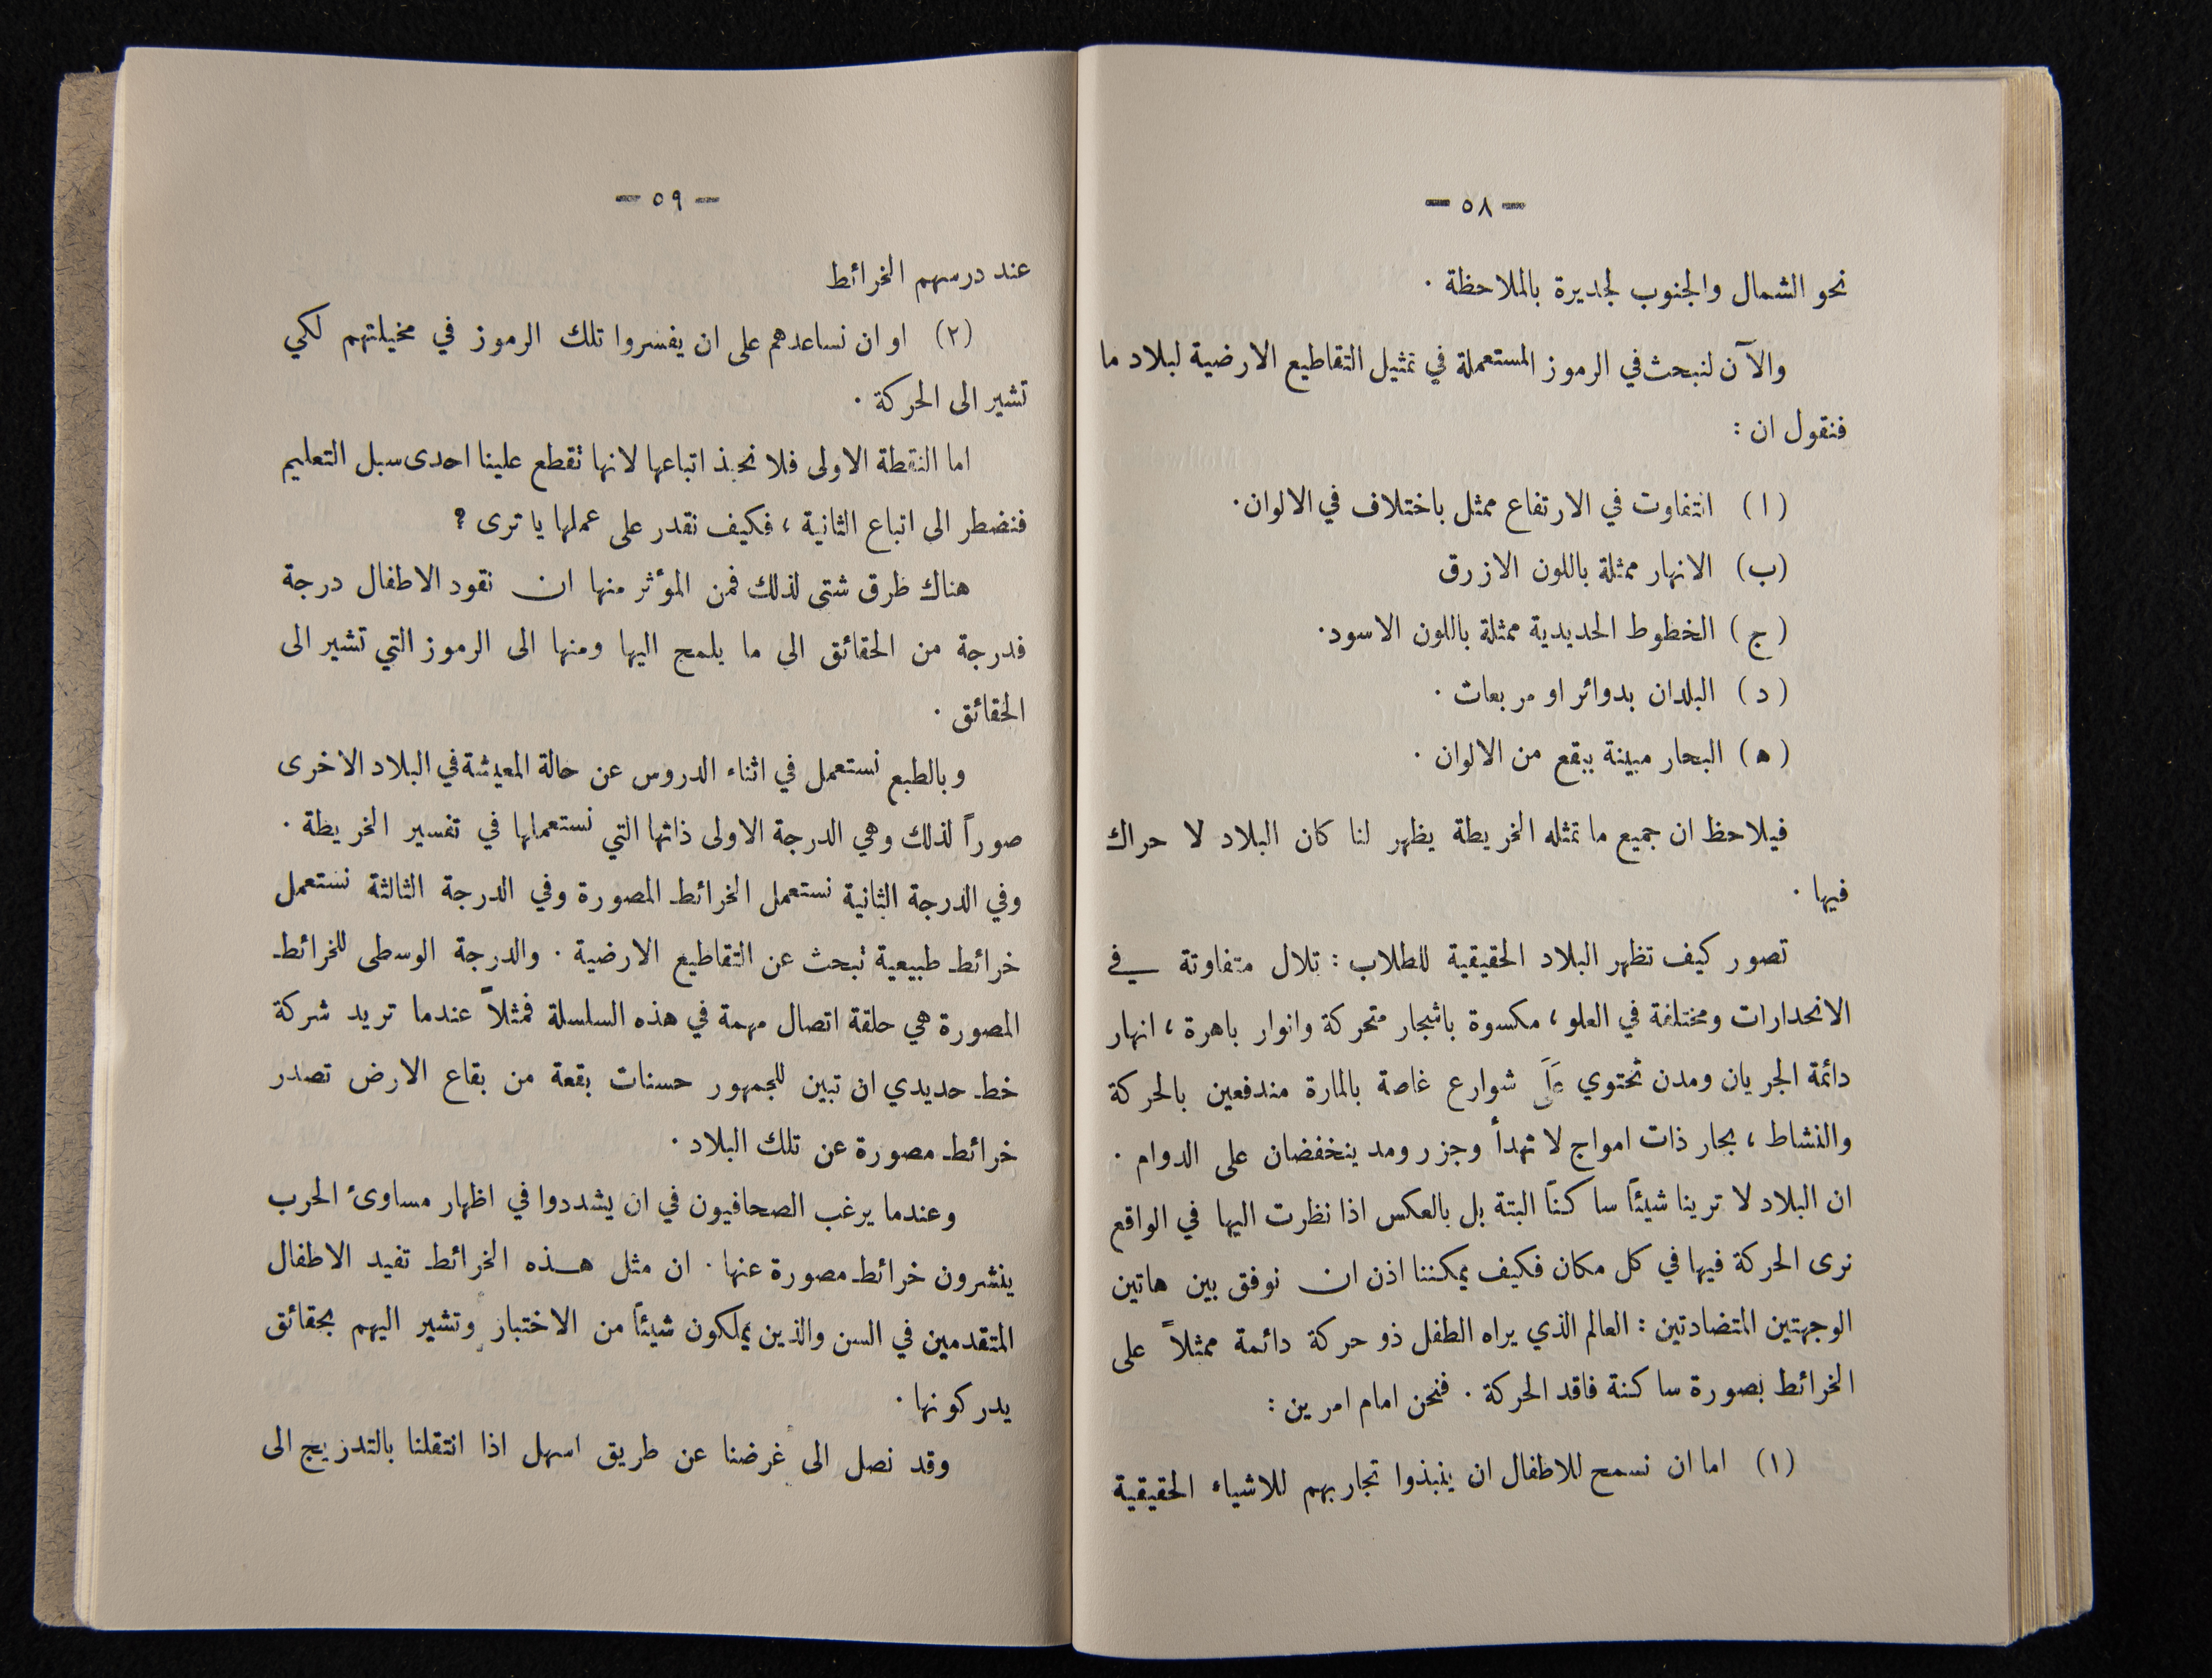 — ٥٨ —
نحو الشمال والجنوب لجديرة بالملاحظة .
والآن لنبحث في الرموز المستعملة في تمثيل التقاطيع الارضية لبلاد ما
فنقول ان :
( ا ) التفاوت في الارتفاع ممثل باختلاف في الالوان .
(ب) الانهار ممثلة باللون الازرق
( ج ) الخطوط الحديدية ممثلة باللون الاسود .
( د ) البلدان بدوائر او مربعات .
( ه ) البحار مبينة ببقع من الالوان .
فيلاحظ ان جميع ما تمثله الخريطة يظهر لنا كان البلاد لا حراك
فيها .
تصور كيف تظهر البلاد الحقيقية للطلاب : تلال متفاوتة في
الانحدارات ومختلفة في العلو ، مكسوة باشجار متحركة وانوار باهرة ، انهار
دائمة الجريان ومدن تحتوي على شوارع غاصة بالمارة مندفعين بالحركة
والنشاط ، بحار ذات امواج لا تهدأ وجزر ومد ينخفضان على الدوام .
ان البلاد لا ترينا شيئاً ساكناً البتة بل بالعكس اذا نظرت اليها في الواقع
نرى الحركة فيها في كل مكان فكيف يمكننا اذن ان نوفق بين هاتين
الوجهتين المتضادتين : العالم الذي يراه الطفل ذو حركة دائمة ممثلاً على
الخرائط بصورة ساكنة فاقد الحركة . فنحن امام امرين :
(١) اما ان نسمح للاطفال ان ينبذوا تجاربهم للاشياء الحقيقية
— ٥٩ —
عند درسهم الخرائط
(٢) او ان نساعدهم على ان يفسروا تلك الرموز في مخيلتهم لكي
تشير الى الحركة .
اما النقطة الاولى فلا نحبذ اتباعها لانها تقطع علينا احدى سبل التعليم
فنضطر الى اتباع الثانية ، فكيف نقدر على عملها يا ترى ؟
هناك طرق شتى لذلك فمن المؤثر منها ان نقود الاطفال درجة
فدرجة من الحقائق الى ما يلمح اليها ومنها الى الرموز التي تشير الى
الحقائق .
وبالطبع نستعمل في اثناء الدروس عن حالة المعيشة في البلاد الاخرى
صوراً لذلك وهي الدرجة الاولى ذاتها التي نستعملها في تفسير الخريطة .
وفي الدرجة الثانية نستعمل الخرائط المصورة وفي الدرجة الثالثة نستعمل
خرائط طبيعية تبحث عن التقاطيع الارضية . والدرجة الوسطى للخرائط
المصورة هي حلقة اتصال مهمة في هذه السلسلة فمثلاً عندما تريد شركة
خط حديدي ان تبين للجمهور حسنات بقعة من بقاع الارض تصدر
خرائط مصورة عن تلك البلاد .
وعندما يرغب الصحافيون في ان يشددوا في اظهار مساوئ الحرب
ينشرون خرائط مصورة عنها . ان مثل هذه الخرائط تفيد الاطفال
المتقدمين في السن والذين يملكون شيئاً من الاختبار وتشير اليهم بحقائق
يدركونها .
وقد نصل الى غرضنا عن طريق اسهل اذا انتقلنا بالتدريج الى